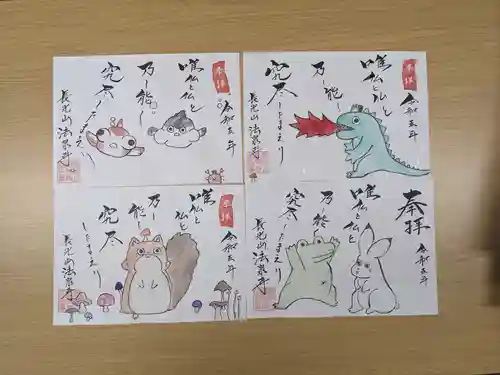 奉拝
令和五年
唯仏と仏と
乃し能く
究尽したまえり
長光山 法泉寺
奉拝
令和五年
唯仏と仏と
乃し能く
究尽したまえり
長光山 法泉寺
奉拝
令和五年
唯仏と仏と
乃し能く
究尽
したまえり
長光山 法泉寺
奉拝
令和五年
唯仏と仏と
乃し能く
究尽
したまえり
長光山 法泉寺